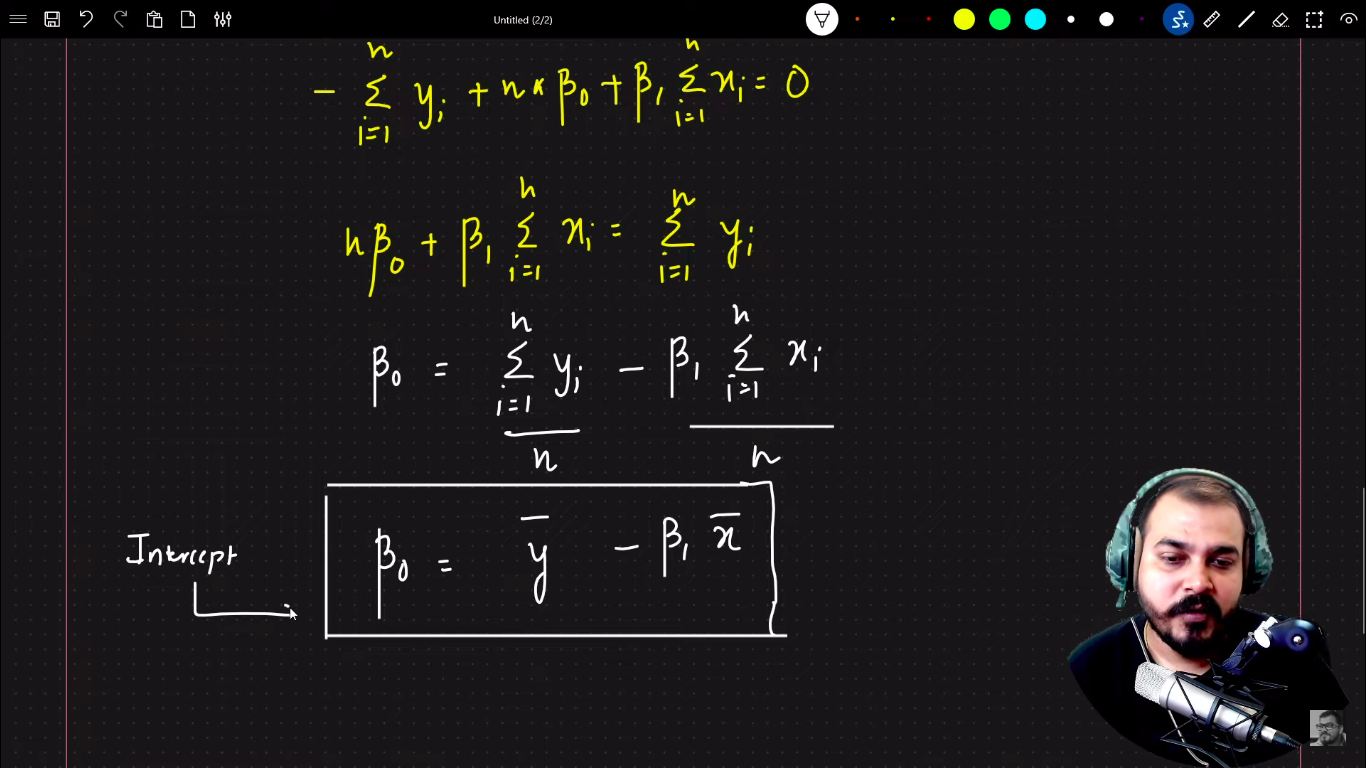 Untitled (2/2)
- n∑i=1 yi + n * β0 + β1 n∑i=1 xi = 0
nβ0 + β1 n∑i=1 xi = n∑i=1 yi
β0 = n∑i=1 yi / n - β1 n∑i=1 xi / n
Intercept
β0 = y̅ - β1 x̅